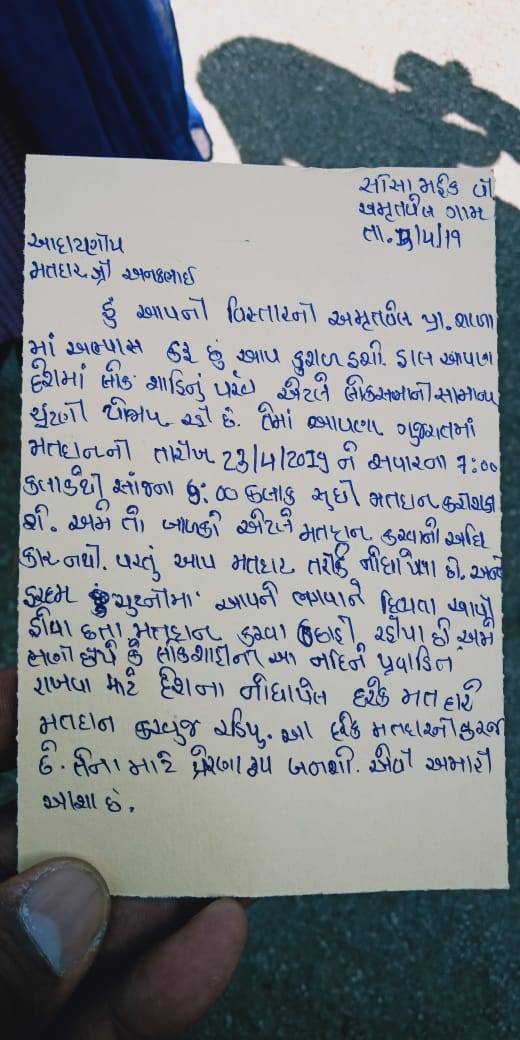 સોસા મઈક વી
અમૃતવેલ ગામ
તા. 5/4/19
આદરણીય
મતદાર શ્રી અનકભાઈ
હું આપની વિસ્તારની અમૃતવેલ પ્રા. શાળા
માં અભ્યાસ કરૂ છું આપ કુશળ હશો. હાલ આપણા
દેશમાં લોક શાહિનું પર્વ એટલે લોકસભાની સામાન્ય
ચુંટણી યોજાય રહી છે. તેમાં આપણા ગુજરાતમાં
મતદાનની તારીખ 23/4/2019 ને સવારના 7:00
કલાકથી સાંજના 6:00 કલાક સુધી મતદાન કરી શકા
શે. અમે તો બાળકો એટલે મતદાન કરવાની અધિ
કાર નથી. પરતું આપ મતદાર તરીકે નોંધાયેલા છો. અને
કદમ આપને ભગવાને દિવ્યતા આપી
હોવા છતા મતદાન કરવા રહીયા છો અમે
ભણી છીએ કે લોકશાહીની આ નદિને પ્રવાહિત
રાખવા માટે દેશના નોંધાયેલ દરેક મતદારે
મતદાન કરવુજ રહિયુ. આ દરેક મતદારની ફરજ
છે. તેના માટે પ્રેરણા રૂપ બનશો. એવી અમારી
આશા છે.